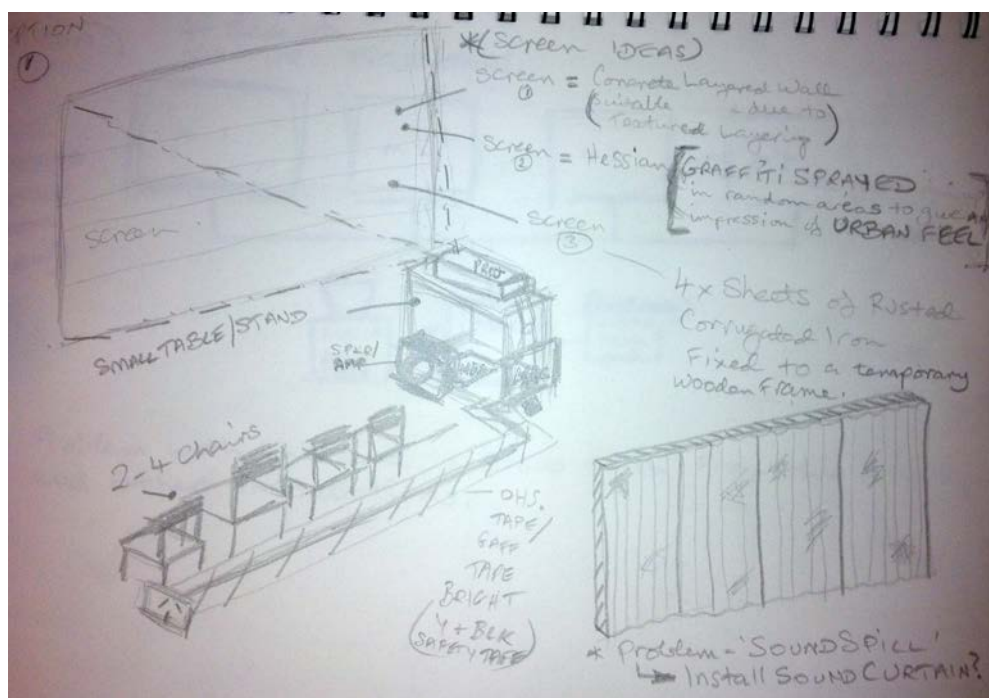 OPTION
①
*(Screen IDEAS)
Screen ① = Concrete Layered Wall
(Suitable - due to
Textured Layering)
Screen ② = Hessian [GRAFFITI SPRAYED
in random areas to give an
impression of URBAN FEEL]
Screen ③
screen
PROJ
4x Sheets of Rusted
Corrugated Iron
Fixed to a temporary
wooden frame.
SMALL TABLE/STAND
SPKR/
AMP
2-4 Chairs
OHS.
TAPE/
GAFF
TAPE
BRIGHT
(Y + BLK
SAFETY TAPE)
* Problem - 'SOUND SPILL'
↳ Install SOUND CURTAIN?